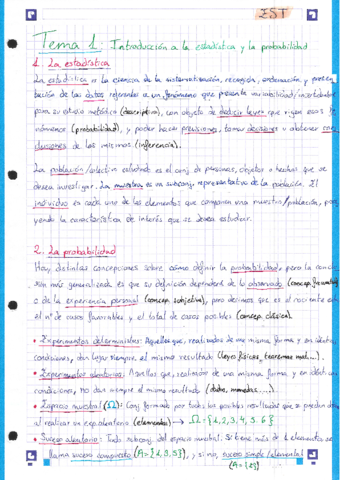 EST
Tema 1: Introducción a la estadística y la probabilidad
1. La estadística
La estadística es la ciencia de la sistematización, recogida, ordenación y presen-
tación de los datos referentes a un fenómeno que presenta variabilidad/incertidumbre
para su estudio metódico (descriptiva), con objeto de deducir leyes que rigen esos fe-
nómenos (probabilidad), y poder hacer previsiones, tomar decisiones u obtener con-
clusiones de las mismas (inferencia).
La población/colectivo estudiado es el conj. de personas, objetos o hechos que se
desea investigar. La muestra es un subconj. representativo de la población. El
individuo es cada uno de los elementos que componen una muestra/población, pose-
yendo la característica de interés que se desea estudiar.
2. La probabilidad
Hay distintas concepciones sobre cómo definir la probabilidad, pero la conclu-
sión más generalizada es que su definición depende de lo observado (concep. frecuentista)
o de la experiencia personal (concep. subjetiva), pero decimos que es el cociente entre
el nº de casos favorables y el total de casos posibles (concep. clásica).
• Experimentos deterministas: Aquellos que, realizados de una misma forma y en idénticas
condiciones, dan lugar siempre al mismo resultado (leyes físicas, teoremas mat...).
• Experimentos aleatorios: Aquellos que, realizados de una misma forma y en idénticas
condiciones, no dan siempre el mismo resultado (dados, monedas...).
• Espacio muestral (Ω): Conj. formado por todos los posibles resultados que se pueden obtener
al realizar un exp. aleatorio (elementos) → Ω = {1, 2, 3, 4, 5, 6}
• Suceso aleatorio: Todo subconj. del espacio muestral. Si tiene más de 1 elementos se
llama suceso compuesto (A = {1, 3, 5}), y si no, suceso simple/elemental
(A = {2})